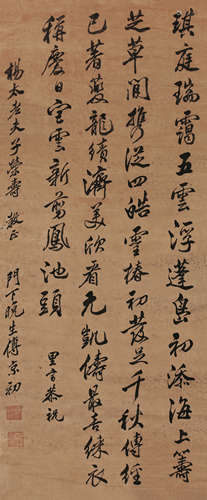 琪庭瑞靄五雲浮蓬島初添海上籌
芝草閒携從四皓靈椿初發是千秋傳經
已著夔龍績濟美欣看元凱儔最喜綵衣
稱慶日彩雲新剪鳳池頭
里言恭祝
楊太老夫子榮壽 教正
門下晚生傅京初